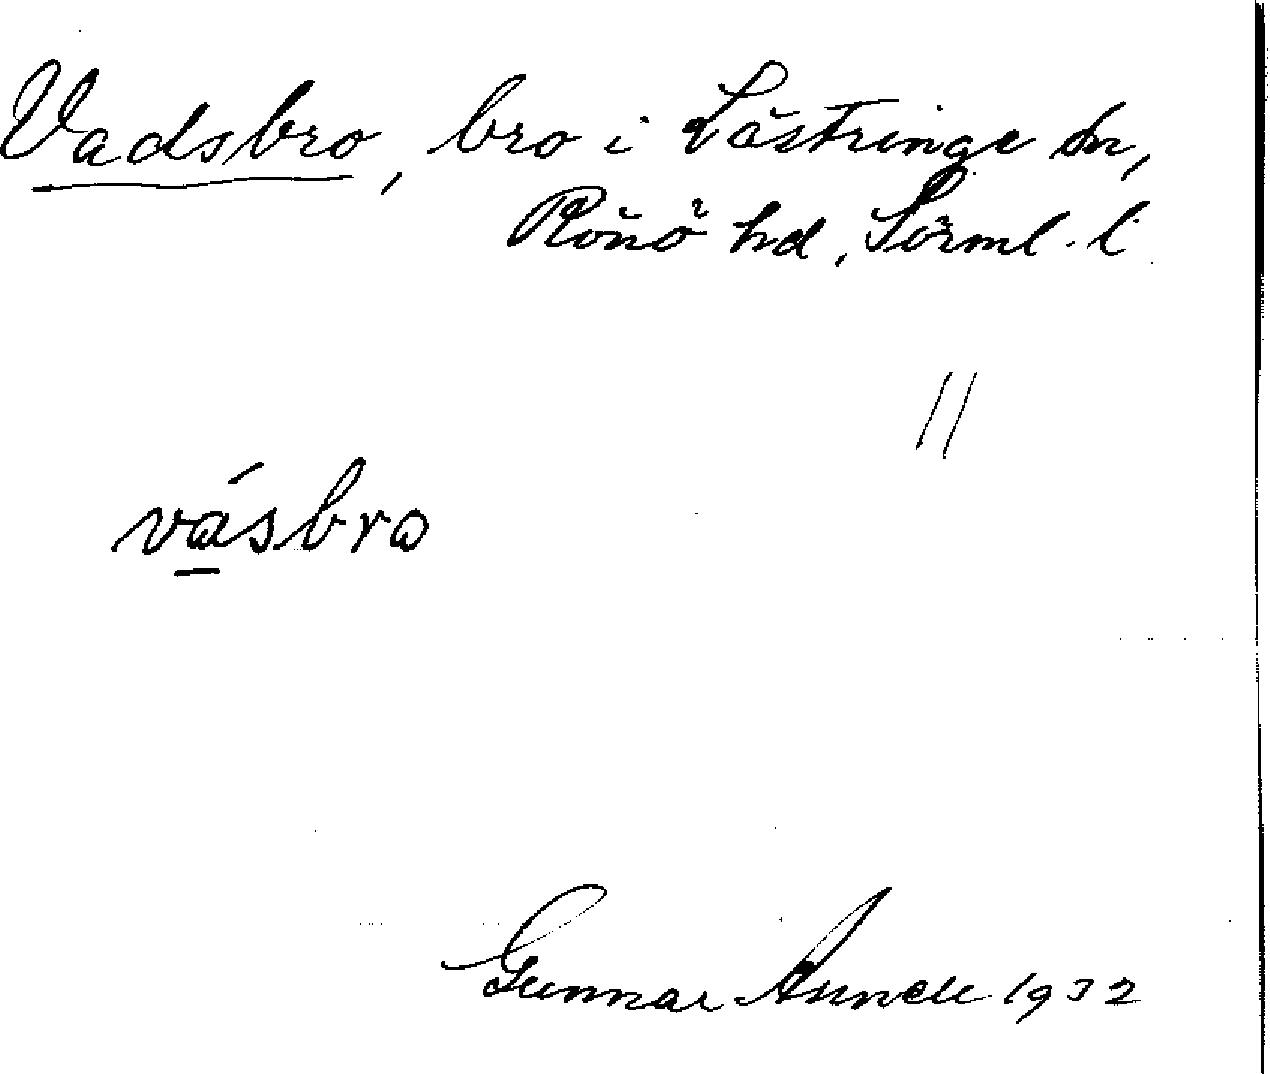 Vadsbro, bro i Lästringe sn,
Rönö hd, Sörml. l.
//
vásbro
Gunnar 1932